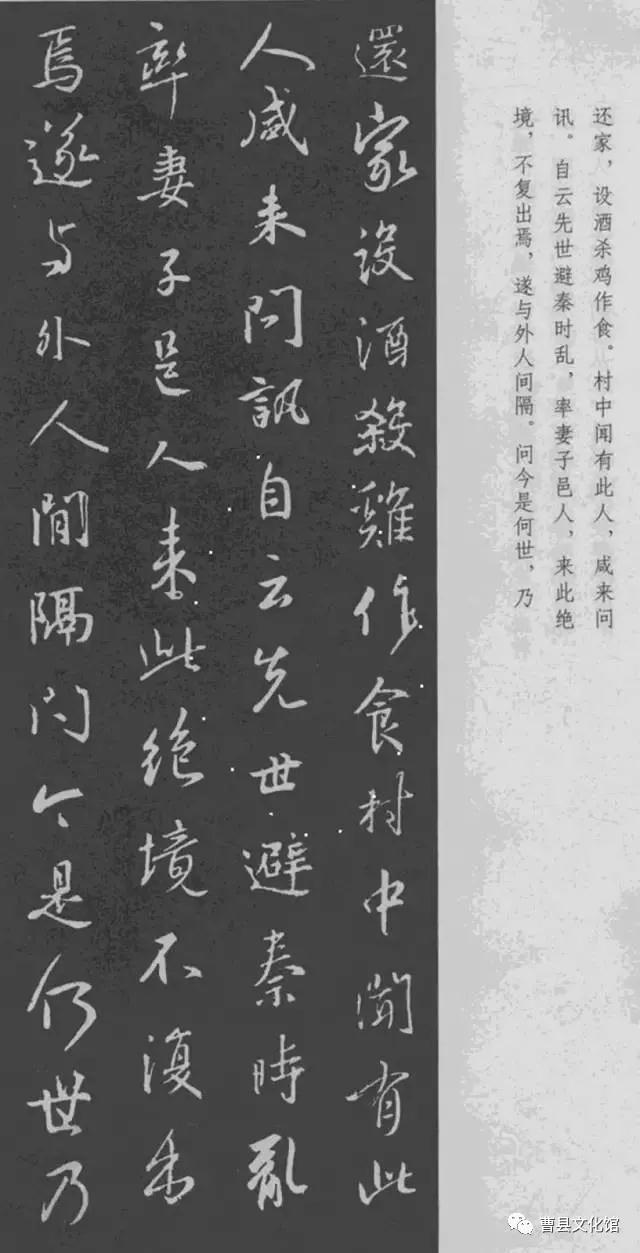 还家，设酒杀鸡作食。村中闻有此人，咸来问
讯。自云先世避秦时乱，率妻子邑人，来此绝
境，不复出焉，遂与外人间隔。问今是何世，乃
還家設酒殺雞作食村中聞有此
人咸来問訊自云先世避秦時亂
率妻子邑人来此絶境不復出
焉遂与外人間隔問今是何世乃
曹县文化馆